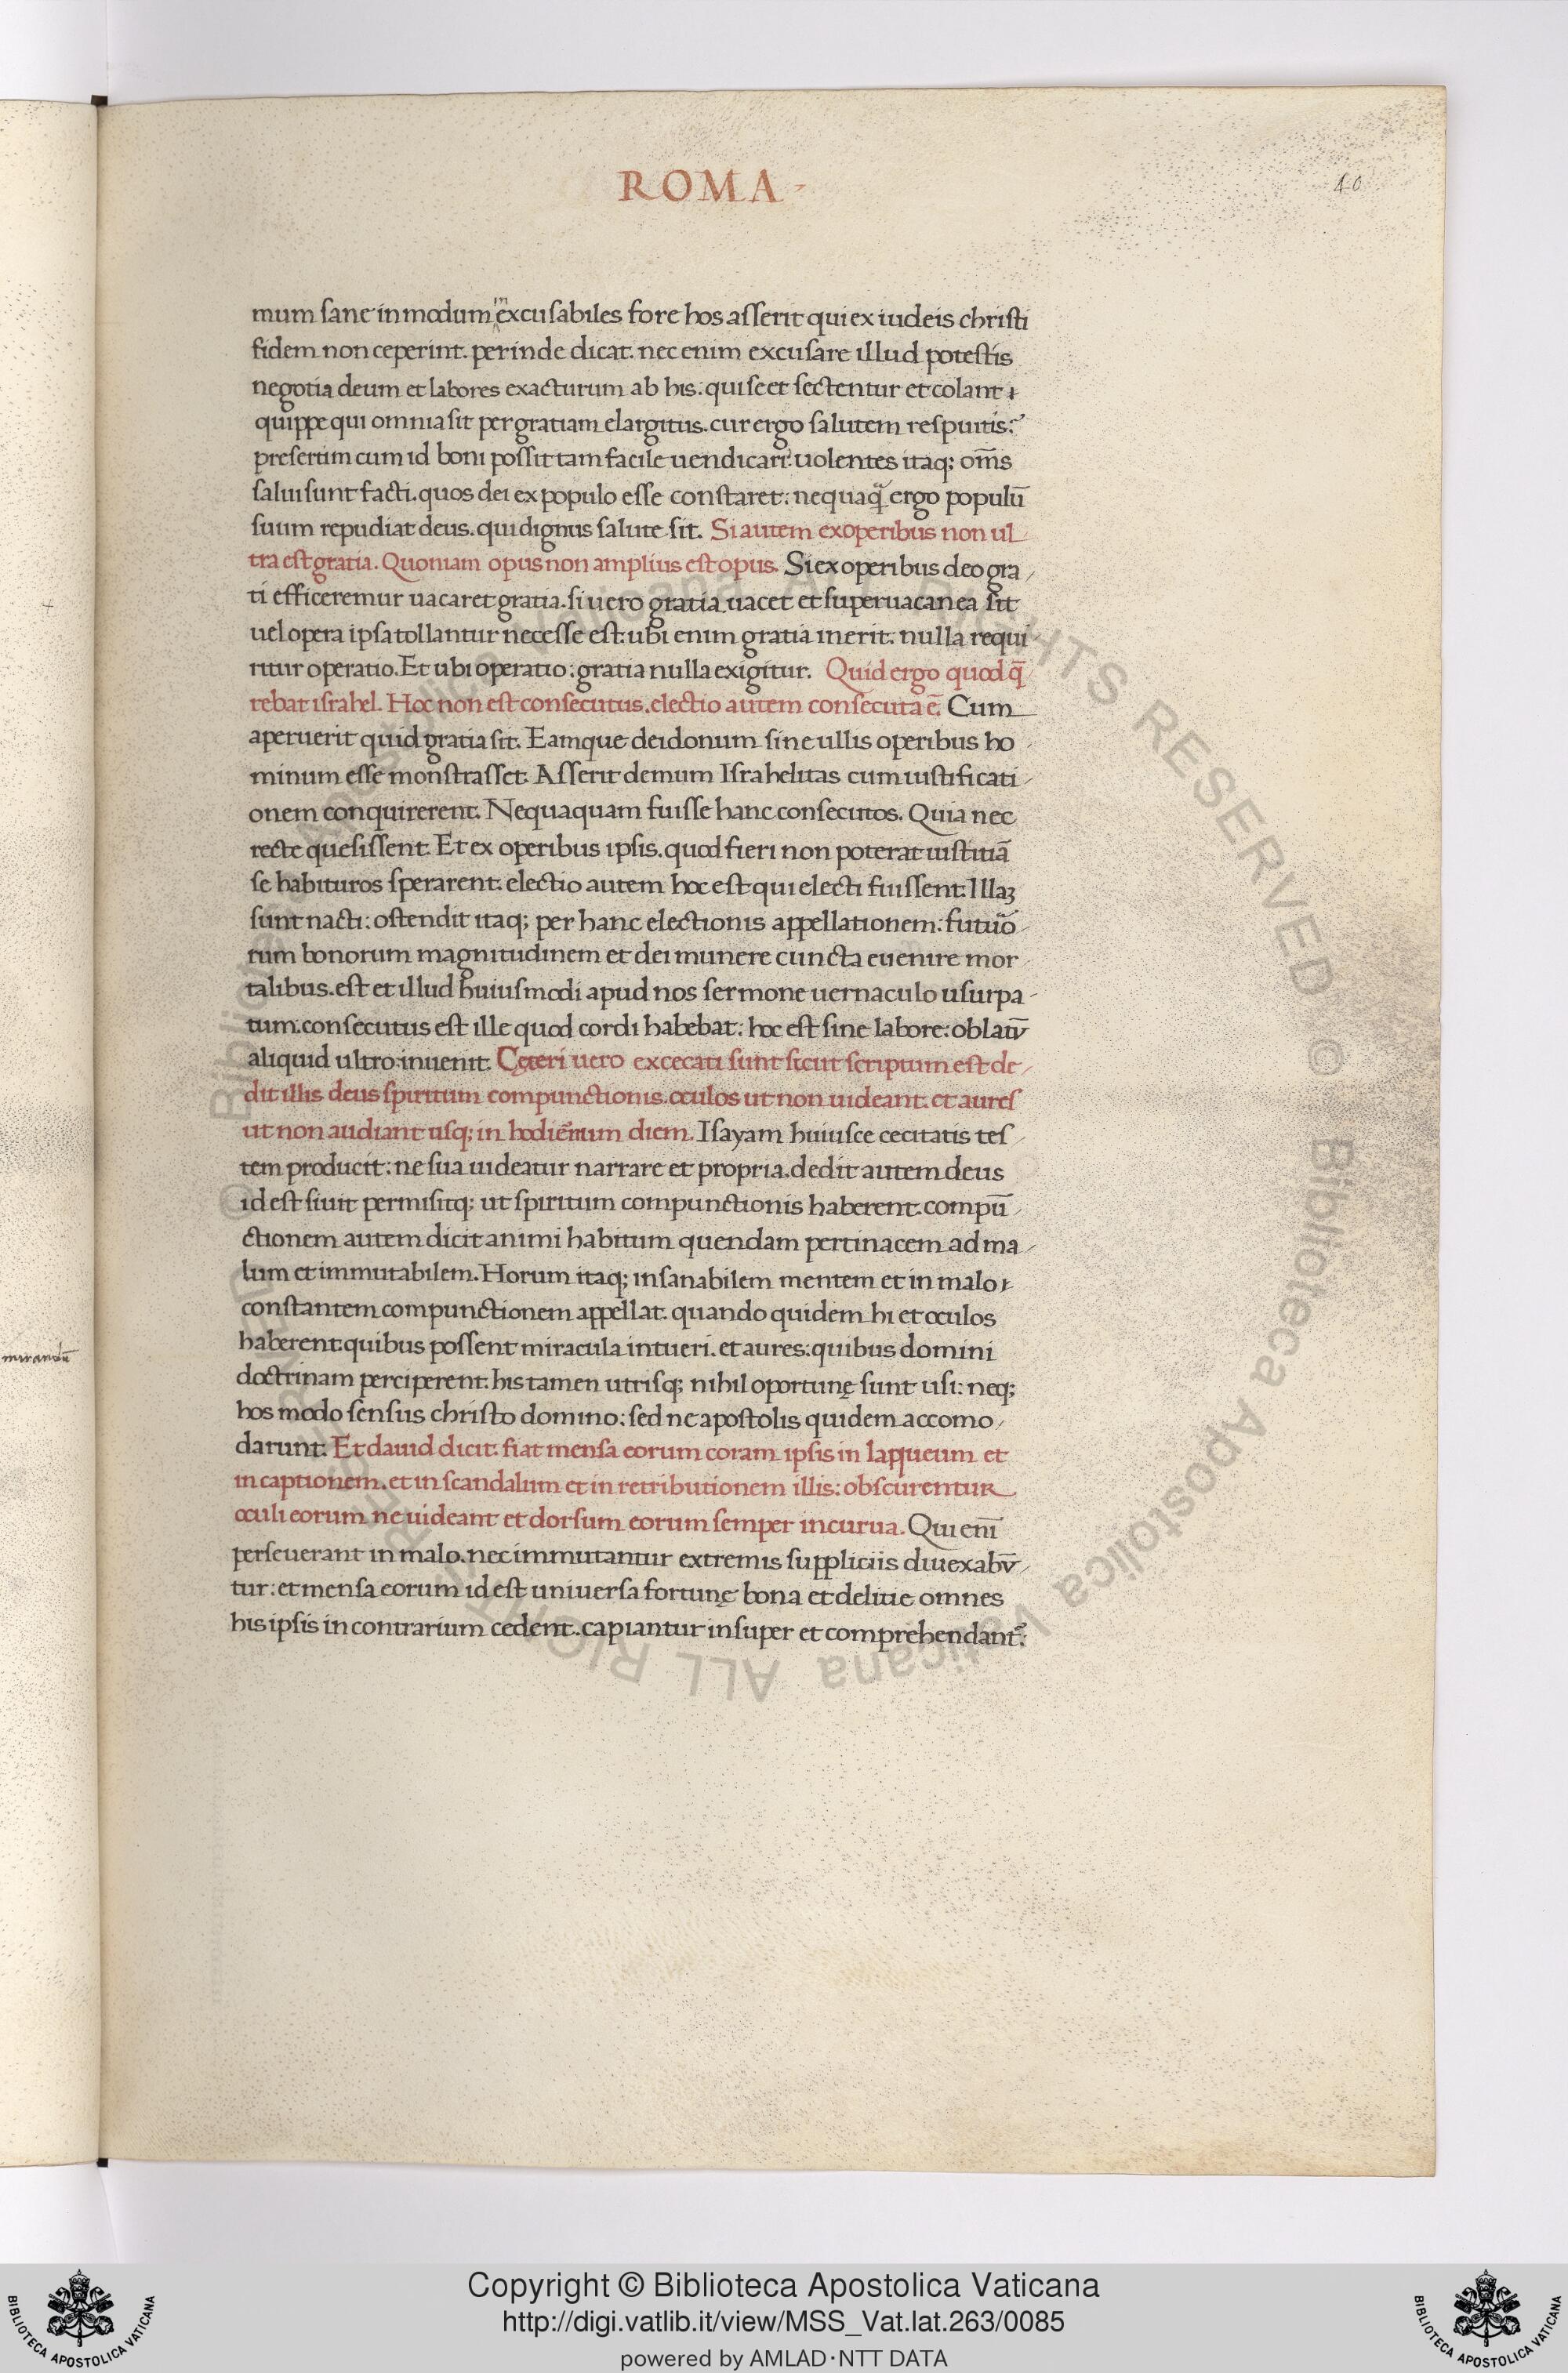 ROMA
40
mum sane in modum inexcusabiles fore hos asserit qui ex iudeis christi
fidem non ceperint. perinde dicat. nec enim excusare illud potestis
negotia deum et labores exacturum ab his: qui se et sectentur et colant
quippe qui omnia sit per gratiam elargitus. cur ergo salutem respuitis:
presertim cum id boni possit tam facile uendicari: uolentes itaq; om̅s
salui sunt facti. quos dei ex populo esse constaret: nequaq̃ ergo populu̅
suum repudiat deus. qui dignus salute sit. Si autem ex operibus non ul
tra est gratia. Quoniam opus non amplius est opus. Si ex operibus deo gra
ti efficeremur uacaret gratia. si uero gratia uacet et superuacanea sit
uel opera ipsa tollantur necesse est: ubi enim gratia inerit: nulla requi
ritur operatio. Et ubi operatio: gratia nulla exigitur. Quid ergo quod q̅
rebat israhel. Hoc non est consecutus. electio autem consecuta e̅. Cum
aperuerit quid gratia sit. Eamque dei donum sine ullis operibus ho
minum esse monstrasset. Asserit demum Israhelitas cum iustificati
onem conquirerent. Nequaquam fuisse hanc consecutos. Quia nec
recte quesissent. Et ex operibus ipsis. quod fieri non poterat iustitia̅
se habituros sperarent: electio autem hoc est qui electi fuissent. Illaꝫ
sunt nacti: ostendit itaq; per hanc electionis appellationem: futuro
rum bonorum magnitudinem et dei munere cuncta euenire mor
talibus. est et illud huiusmodi apud nos sermone uernaculo usurpa
tum. consecutus est ille quod cordi habebat: hoc est sine labore: oblatu̅
aliquid ultro inuenit. Cęteri uero excecati sunt sicut scriptum est de
dit illis deus spiritum compunctionis. oculos ut non uideant. et aures
ut non audiant usq; in hodiernum diem. Isayam huiusce cecitatis tes
tem producit: ne sua uideatur narrare et propria. dedit autem deus
id est siuit permisitq; ut spiritum compunctionis haberent. compu̅
ctionem autem dicit animi habitum quendam pertinacem ad ma
lum et immutabilem. Horum itaq; insanabilem mentem et in malo
constantem compunctionem appellat. quando quidem hi et oculos
haberent. quibus possent miracula intueri. et aures: quibus domini
doctrinam perciperent: his tamen utrisq; nihil oportunę sunt usi: neq;
hos modo sensus christo domino: sed ne apostolis quidem accomo
darunt. Et dauid dicit. fiat mensa eorum coram ipsis in laqueum et
in captionem. et in scandalum et in retributionem illis: obscurentur
oculi eorum ne uideant et dorsum eorum semper incurua. Qui eni̅
perseuerant in malo. nec immutantur extremis suppliciis diuexabu̅
tur: et mensa eorum id est uniuersa fortunę bona et delitie omnes
his ipsis in contrarium cedent. capiantur insuper et comprehendant᷑:
mirandu̅
© Biblioteca Apostolica Vaticana ALL RIGHTS RESERVED
Copyright © Biblioteca Apostolica Vaticana
http://digi.vatlib.it/view/MSS_Vat.lat.263/0085
powered by AMLAD·NTT DATA
BIBLIOTECA APOSTOLICA VATICANA
BIBLIOTECA APOSTOLICA VATICANA